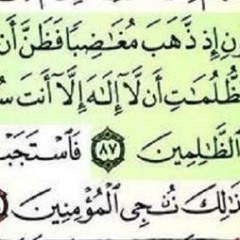 ون إِذ ذَّهَبَ مُغَٰضِبًا فَظَنَّ أَن
ظُّلُمَٰتِ أَن لَّآ إِلَٰهَ إِلَّآ أَنتَ سُ
لظَّٰلِمِينَ ٨٧ فَٱسْتَجَبْ
ذَٰلِكَ نُـْۨجِى ٱلْمُؤْمِنِينَ